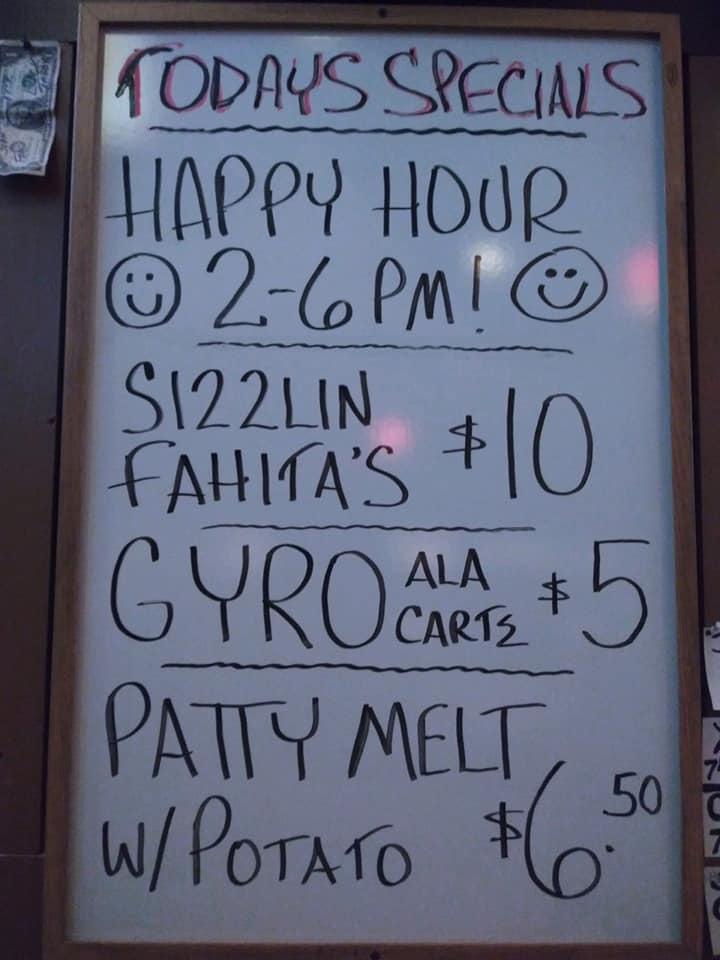 TODAYS SPECIALS
HAPPY HOUR
2-6 PM!
SIZZLIN
FAHITA'S $10
GYRO ALA CARTE $5
PATTY MELT
W/ POTATO $6.50